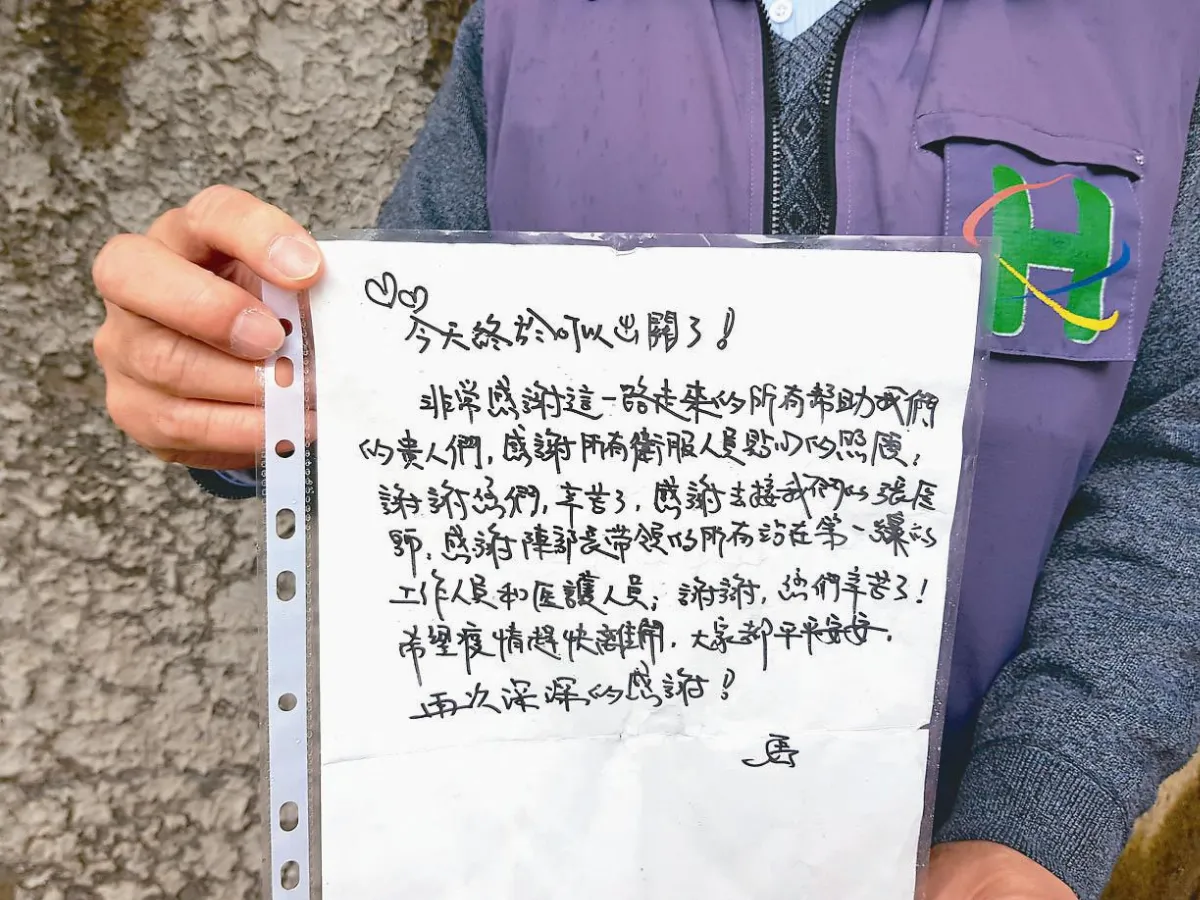 今天終於可以出關了!
非常感謝這一路走來的所有幫助我們
的貴人們,感謝所有衛服人員貼心的照應;
謝謝您們,辛苦了,感謝去接我們的張医
師,感謝陳部長帶領的所有站在第一線的
工作人員和医護人員;謝謝,您們辛苦了!
希望疫情趕快離開,大家都平平安安.
再次深深的感謝!
馬
H